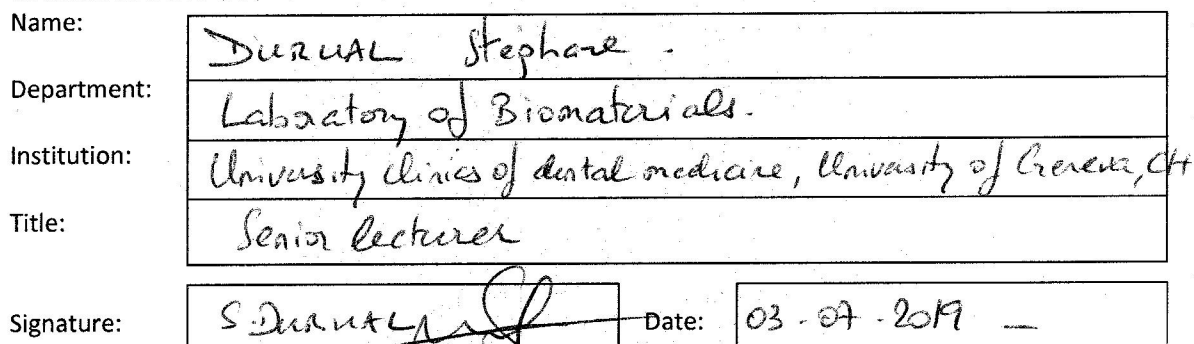 Name: DURUAL Stephane.
Department: Laboratory of Biomaterials.
Institution: University clinics of dental medicine, University of Geneva, CH
Title: Senior lecturer
Signature: S. DURUAL Date: 03-07-2019